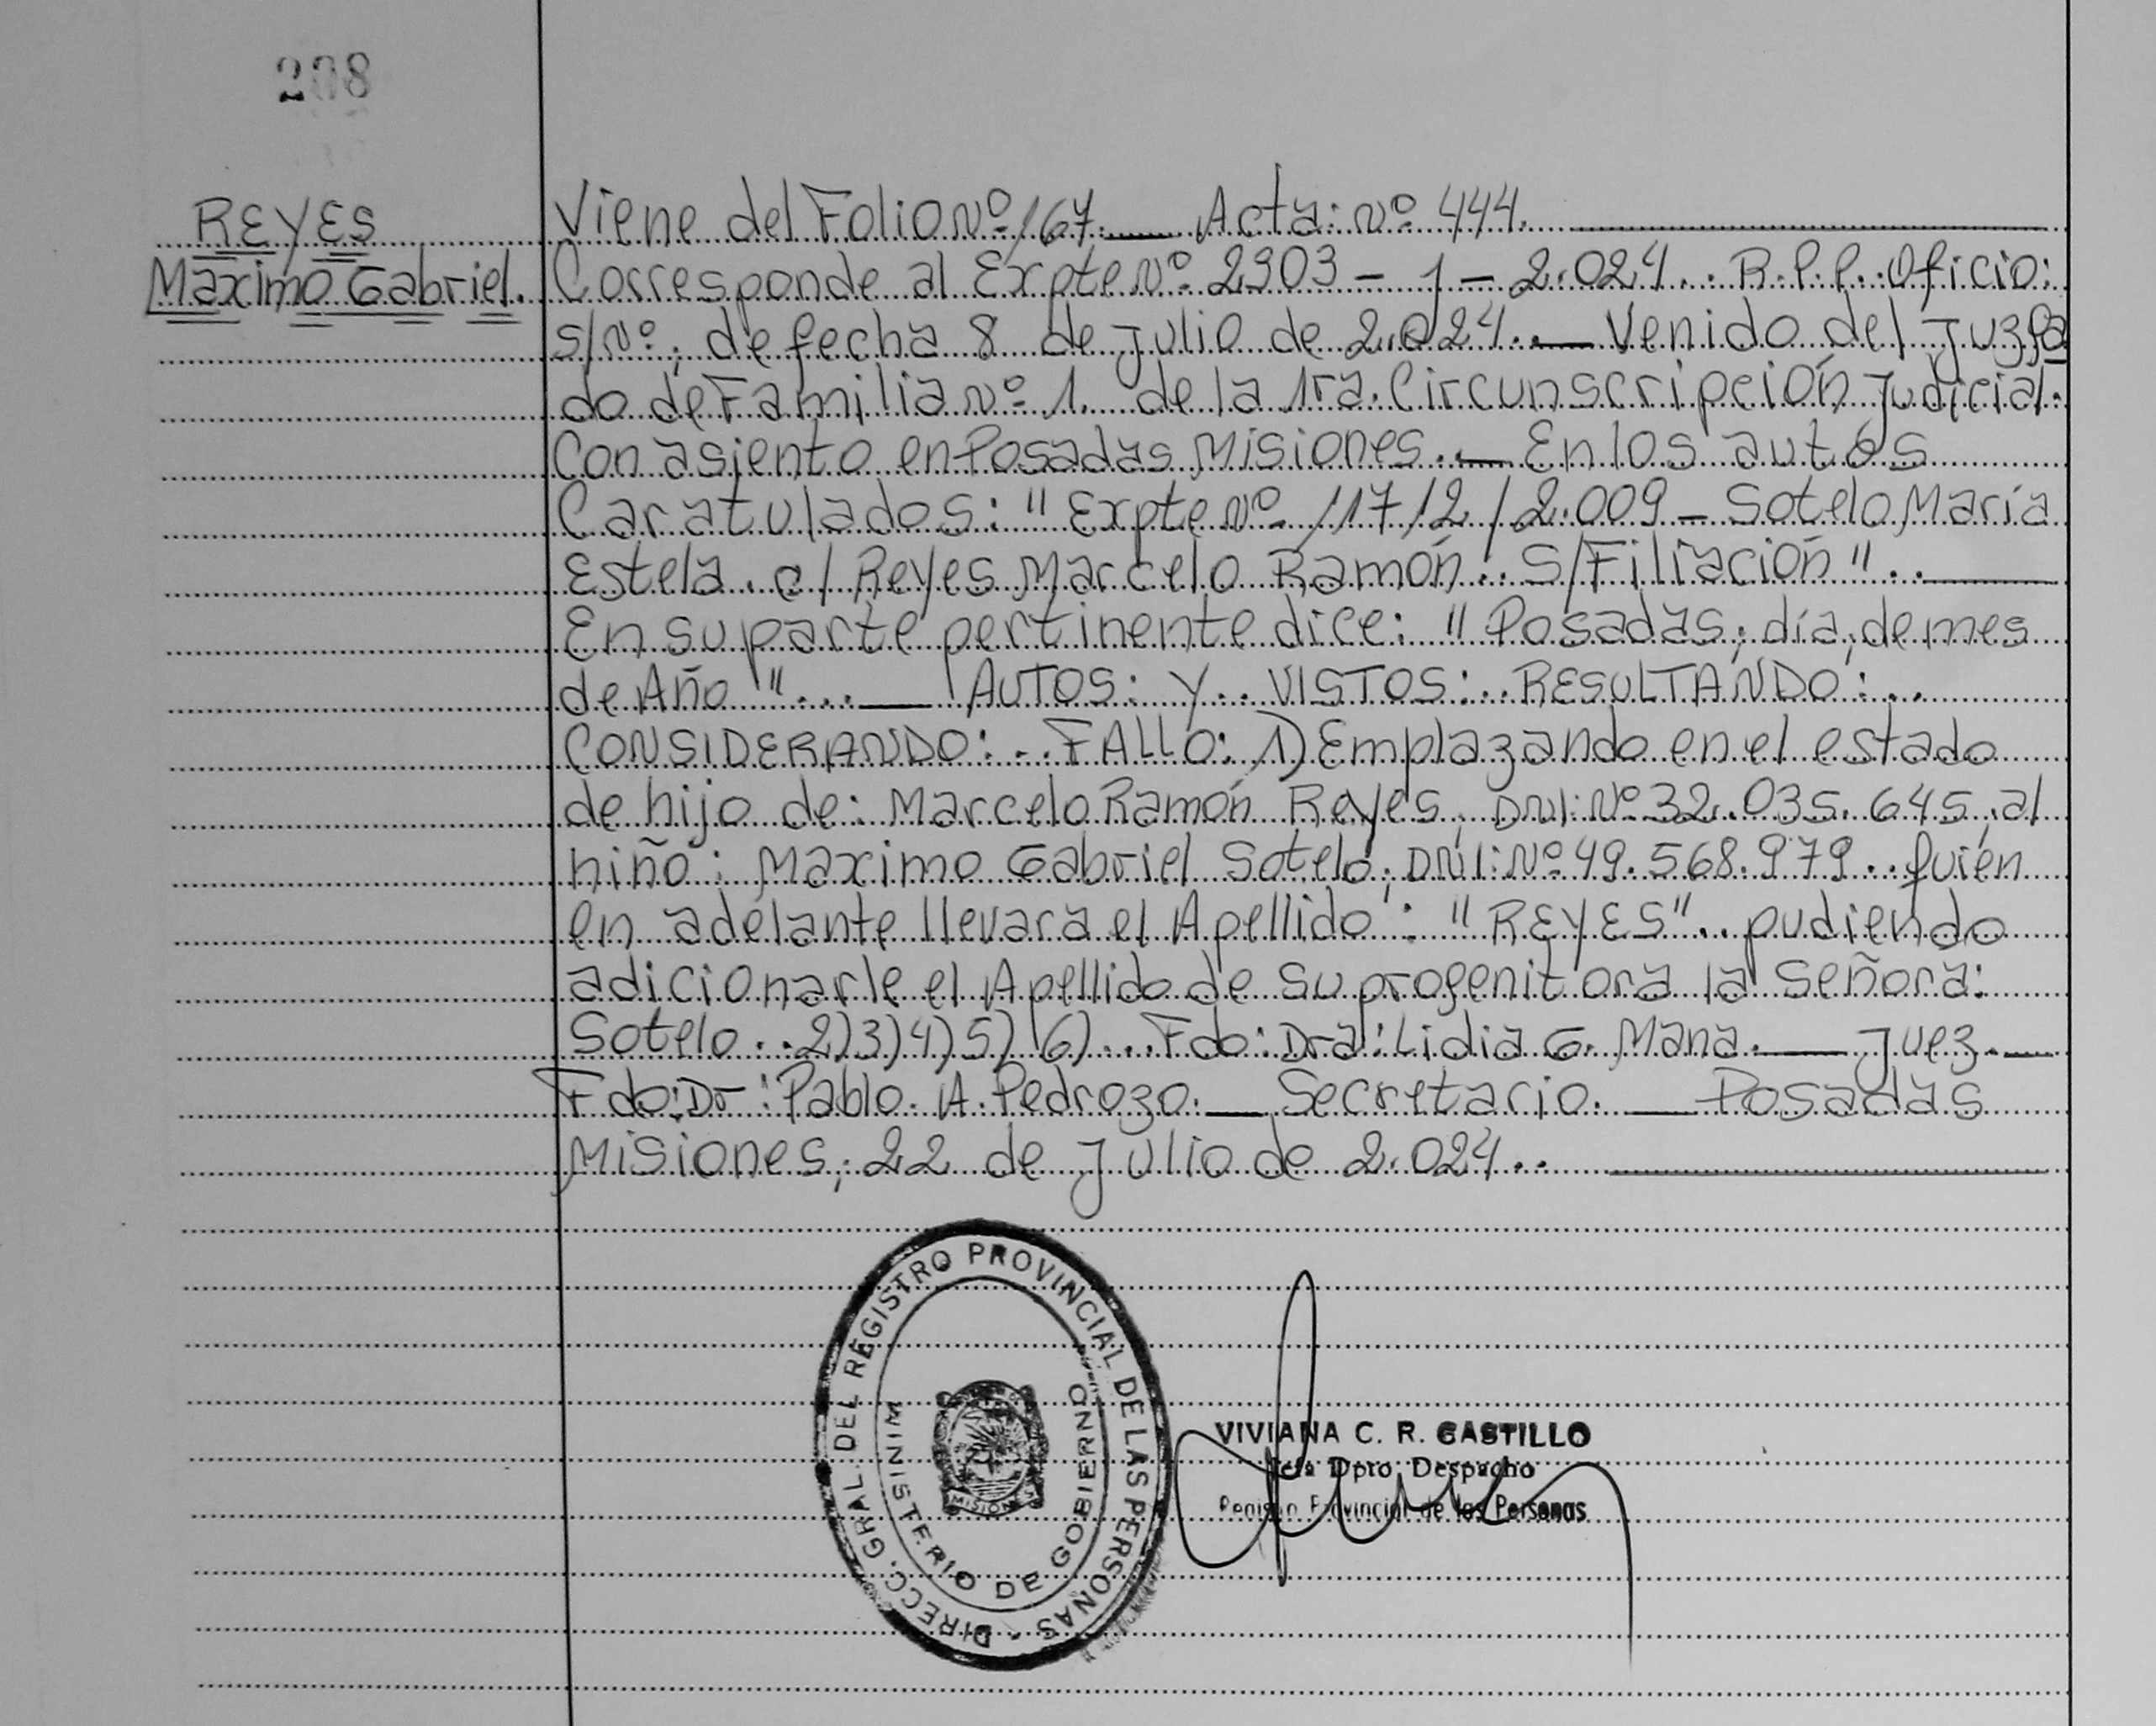 208
REYES
Maximo Gabriel.
Viene del Folio Nº 167. — Acta: Nº 444.
Corresponde al Expte Nº 2303 - J - 2.024.. R.P.P. Oficio:
S/Nº, de fecha 8 de Julio de 2.024.. — Venido del Juzga
do de Familia Nº 1. de la 1ra. Circunscripción Judicial.
Con asiento en Posadas Misiones.. — En los autos
Caratulados: "Expte Nº 11712/2.009 - Sotelo Maria
Estela. c/ Reyes Marcelo Ramón.. S/Filiación"..
En su parte pertinente dice: "Posadas, día, de mes
de Año"... — AUTOS: Y.. VISTOS:.. RESULTANDO:..
CONSIDERANDO:.. FALLO: 1) Emplazando en el estado
de hijo de: Marcelo Ramón Reyes, DNI: Nº 32.035.645, al
niño: Maximo Gabriel Sotelo, DNI: Nº 49.568.979.. quién
en adelante llevara el Apellido: "REYES".. pudiendo
adicionarle el Apellido de su progenitora la Señora:
Sotelo.. 2)3)4)5) 6)... Fdo: Dra: Lidia G. Mana. — Juez. —
Fdo: Dr: Pablo. A. Pedrozo. — Secretario. — Posadas
Misiones, 22 de Julio de 2.024..
DIRECC. GRAL. DEL REGISTRO PROVINCIAL DE LAS PERSONAS
MINISTERIO DE GOBIERNO
MISIONES
VIVIANA C. R. CASTILLO
Jefa Dpto. Despacho
Provincial de las Personas